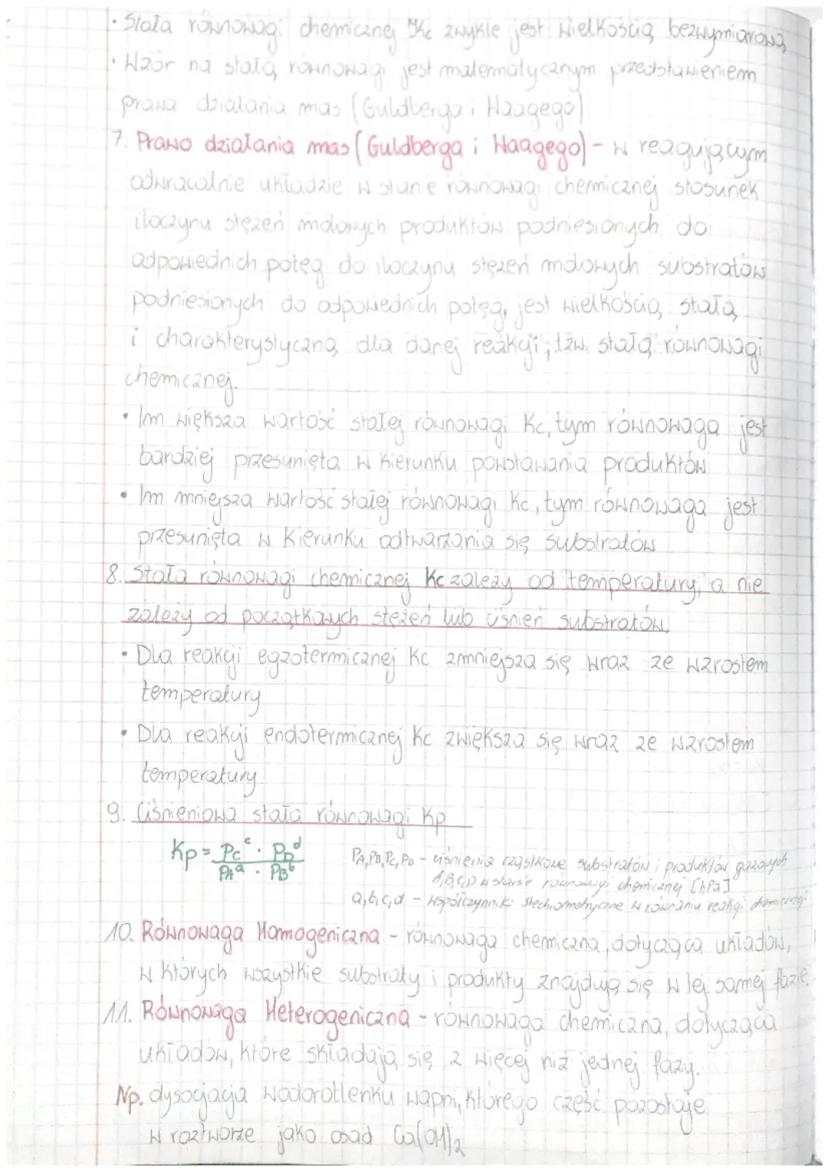 • Stała równowagi chemicznej Kc zwykle jest wielkością bezwymiarową
• Wzór na stałą równowagi jest matematycznym przedstawieniem
prawa działania mas (Guldberga i Waagego)
7. Prawo działania mas (Guldberga i Waagego) - w reagującym
odwracalnie układzie w stanie równowagi chemicznej stosunek
iloczynu stężeń molowych produktów podniesionych do
odpowiednich potęg do iloczynu stężeń molowych substratów
podniesionych do odpowiednich potęg, jest wielkością stałą
i charakterystyczną dla danej reakcji, tzw. stałą równowagi
chemicznej.
• Im większa wartość stałej równowagi Kc, tym równowaga jest
bardziej przesunięta w kierunku powstawania produktów
• Im mniejsza wartość stałej równowagi Kc, tym równowaga jest
przesunięta w kierunku odtwarzania się substratów
8. Stała równowagi chemicznej Kc zależy od temperatury, a nie
zależy od początkowych stężeń lub ciśnień substratów.
• Dla reakcji egzotermicznej Kc zmniejsza się wraz ze wzrostem
temperatury
• Dla reakcji endotermicznej Kc zwiększa się wraz ze wzrostem
temperatury
9. Ciśnieniowa stała równowagi Kp
Kp = Pc^c · PD^d / PA^a · PB^b
PA, PB, PC, PD - ciśnienia cząstkowe substratów i produktów gazowych
A,B,C,D w stanie równowagi chemicznej [hPa]
a,b,c,d - współczynniki stechiometryczne w równaniu reakcji chemicznej
10. Równowaga Homogeniczna - równowaga chemiczna, dotycząca układów,
w których wszystkie substraty i produkty znajdują się w tej samej fazie.
11. Równowaga Heterogeniczna - równowaga chemiczna, dotycząca
układów, które składają się z więcej niż jednej fazy.
Np. dysocjacja wodorotlenku wapni, którego część pozostaje
w roztworze jako osad Ca(OH)2